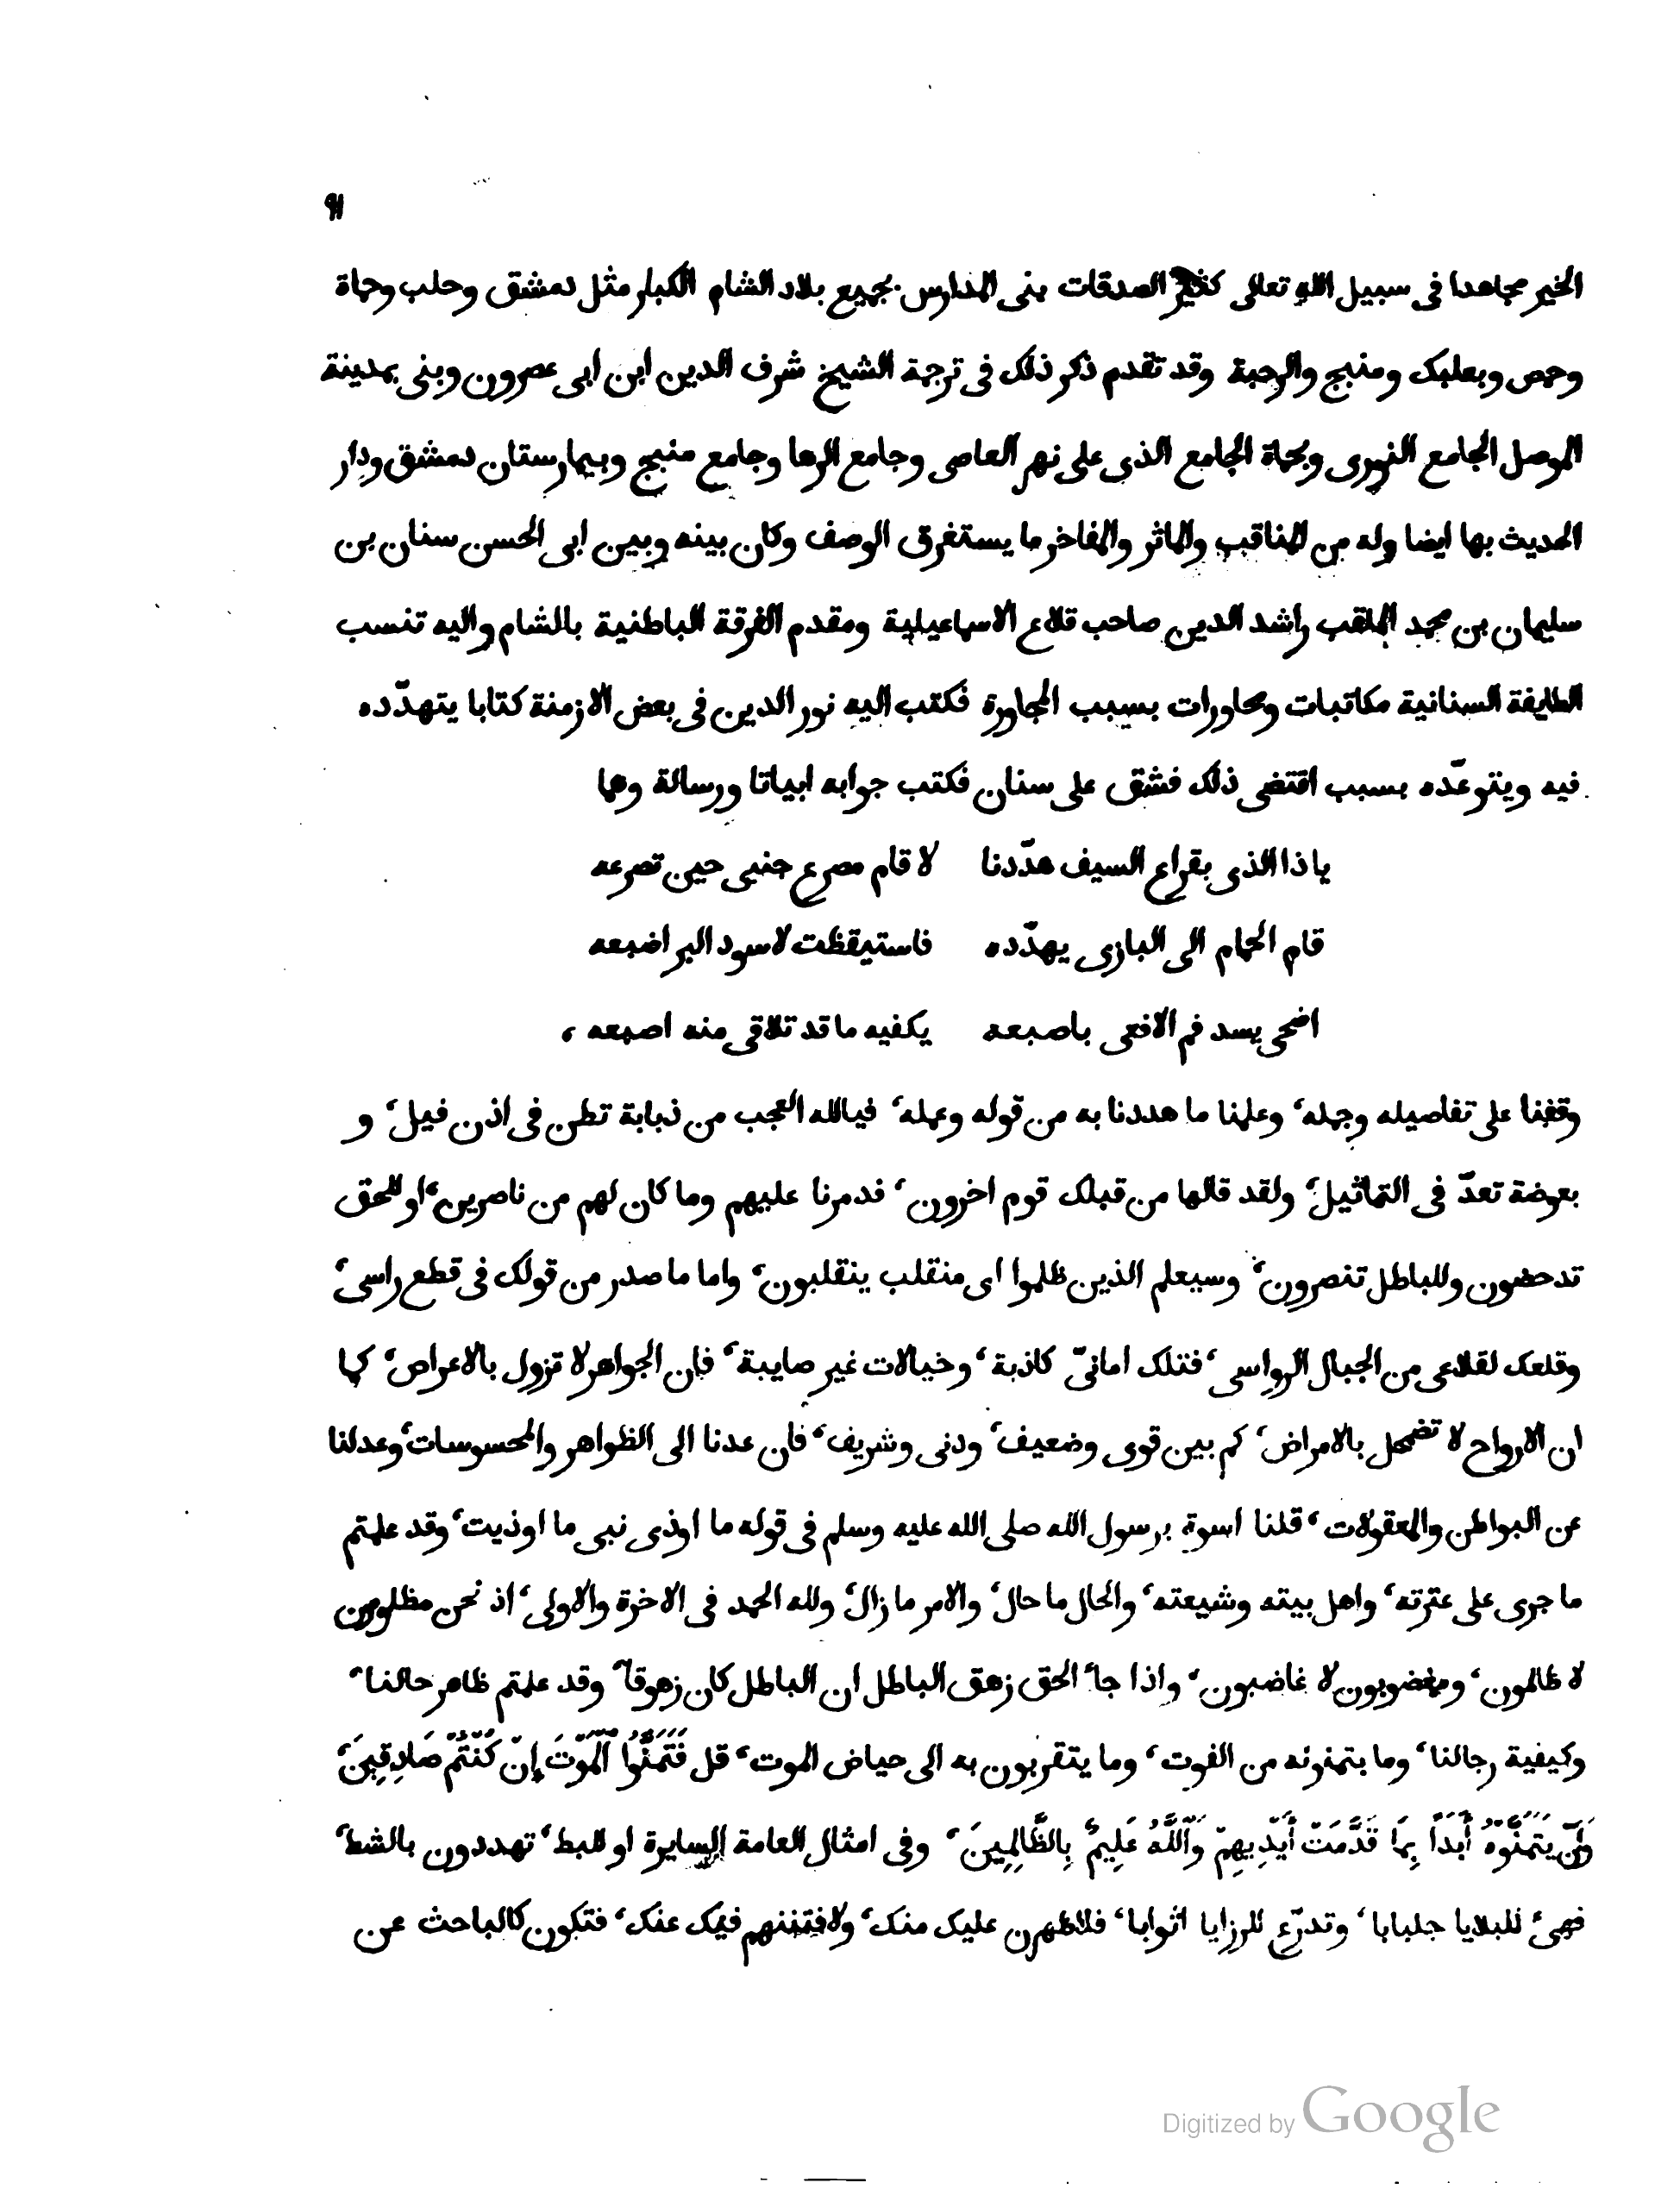 ٩١
الخير مجاهدا فى سبيل الله تعالى كثير الصدقات بنى المدارس بجميع بلاد الشام الكبار مثل دمشق وحلب وحماة
وحمص وبعلبك ومنبج والرحبة وقد تقدم ذكر ذلك فى ترجمة الشيخ شرف الدين ابن ابى عصرون وبنى بمدينة
الموصل الجامع النورى وبحماة الجامع الذى على نهر العاصى وجامع الرها وجامع منبج وبيمارستان دمشق ودار
الحديث بها ايضا وله من المناقب والماثر والمفاخر ما يستغرق الوصف وكان بينه وبين ابى الحسن سنان بن
سليمان بن محمد الملقب راشد الدين صاحب قلاع الاسماعيلية ومقدم الفرقة الباطنية بالشام واليه تنسب
الطايفة السنانية مكاتبات ومحاورات بسبب المجاورة فكتب اليه نور الدين فى بعض الازمنة كتابا يتهدّده
فيه ويتوعّده بسبب اقتضى ذلك فشق على سنان فكتب جوابه ابياتا ورسالة وهما
يا ذا الذى بقراع السيف هدّدنا لا قام مصرع جنبى حين تصرعه
قام الحمام الى البازى يهدّده فاستيقظت لاسود البر اضبعه
اضحى يسد فم الافعى باصبعه يكفيه ما قد تلاقى منه اصبعه ،
وقفنا على تفاصيله وجمله، وعلمنا ما هددنا به من قوله وعمله، فيالله العجب من ذبابة تطن فى اذن فيل، و
بعوضة تعدّ فى التماثيل، ولقد قالها من قبلك قوم اخرون، فدمرنا عليهم وما كان لهم من ناصرين، او للحق
تدحضون وللباطل تنصرون، وسيعلم الذين ظلموا اى منقلب ينقلبون، واما ما صدر من قولك فى قطع راسى،
وقلعك لقلاعى من الجبال الرواسى، فتلك امانىّ كاذبة، وخيالات غير صايبة، فان الجواهر لا تزول بالاعراض، كما
ان الارواح لا تضمحل بالامراض، كم بين قوى وضعيف، ودنى وشريف، فان عدنا الى الظواهر والمحسوسات، وعدلنا
عن البواطن والمعقولات، قلنا اسوة برسول الله صلى الله عليه وسلم فى قوله ما اوذى نبى ما اوذيت، وقد علمتم
ما جرى على عترته، واهل بيته وشيعته، والحال ما حال، والامر ما زال، ولله الحمد فى الاخرة والاولى، اذ نحن مظلومون
لا ظالمون، ومغضوبون لا غاضبون، واذا جاء الحق زهق الباطل ان الباطل كان زهوقا، وقد علمتم ظاهر حالنا،
وكيفية رجالنا، وما يتمنونه من الفوت، وما يتقربون به الى حياض الموت، قل فَتَمَنَّوُا ٱلْمَوْتَ إِنْ كُنْتُمْ صَادِقِينَ،
وَلَنْ يَتَمَنَّوْهُ أَبَدًا بِمَا قَدَّمَتْ أَيْدِيهِمْ وَٱللَّهُ عَلِيمٌ بِالظَّالِمِينَ، وفى امثال العامة السايرة او للبط، تهددون بالشط،
فهىء للبلايا جلبابا، وتدرّع للرزايا اثوابا، فلاظهرن عليك منك، ولافتننهم فيك عنك، فتكون كالباحث عن
Digitized by Google